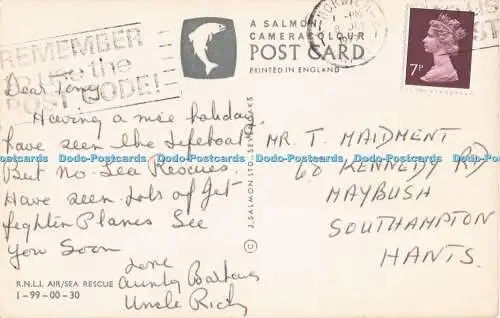 REMEMBER
use the
POST CODE!
A SALMON
CAMERACOLOUR
POST CARD
PRINTED IN ENGLAND
7P
Dear Tony
Having a nice holiday
have seen the lifeboat
But no Sea Rescues.
Have seen lots of Jet
fighter Planes See
you Soon
Love
Aunty Barbara
Uncle Rich
R.N.L.I. AIR/SEA RESCUE
1-99-00-30
J. SALMON LTD. SEVENOAKS ©
MR. T. MAIDMENT
60 KENNEDY RD
MAYBUSH
SOUTHAMPTON
HANTS.
Dodo-Postcards Dodo-Postcards Dodo-Postcards Dodo-Postcards Dodo-Postcards